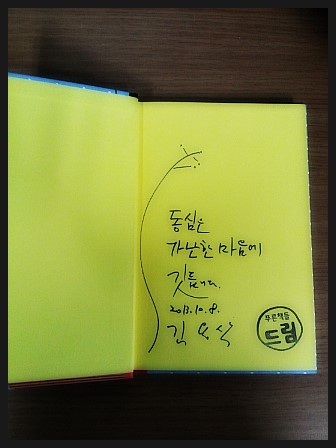 동심은
가난한 마음에
깃듭니다.
2013.10.8.
김 용 삭
푸른책들
드림